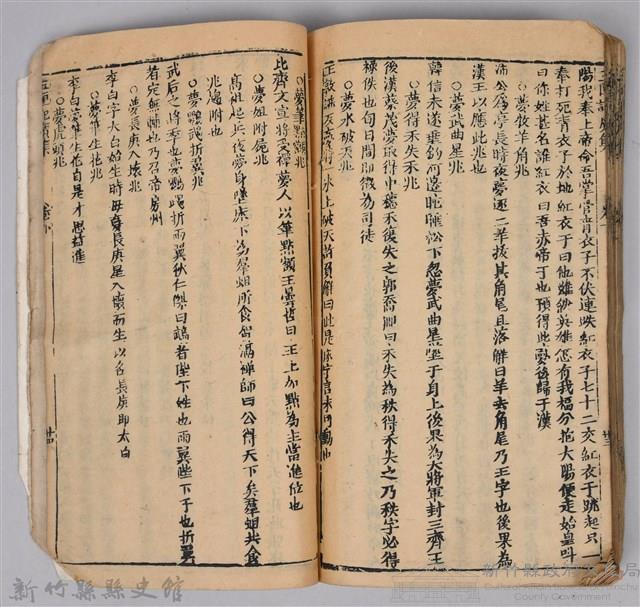 陽我奉上帝命吾掌管青衣子不伏連跌紅衣子七十二交紅衣子跳起只
奉打死青衣子於地紅衣子曰他雖紗英雄怎有我福分抱太陽便走始皇叫
曰你姓甚名誰紅衣曰吾赤帝子也預得此夢後歸于漢
○夢拔羊角兆
沛公為亭長時夜夢逐二羊拔其角尾且落解曰羊去角尾乃王字也後果為
漢王以應此兆也
○夢武曲星兆
韓信未遂垂釣河邊眈睡松下忽夢武曲星墜于身上後果為大將軍封三齊王
○夢得禾失禾兆
後漢蔡茂夢取得中穗禾復失之郭喬卿曰禾失為秩得禾失之乃秩字必得
極秩也旬日間即徵為司徒
○夢水破天兆
○夢筆點額兆
比齊文宣將受禪夢人以筆點額王曇哲曰王上加點為主當進位也
○夢蛆附屍兆
高祖起兵後夢身墜床下為羣蛆所食智滿禪師曰公得天下矣羣蛆共食
兆嵎附也
○夢鸚鵡折翼兆
武后之將季也夢鸚鵡折兩翼狄仁傑曰鵡者陛下姓也兩翼陛下子也折翼
者定無輔也乃召帝房州
○夢長庚入懷兆
李白字太白始生時母身長庚星入懷而生以名長庚即太白
○夢筆生花兆
李白夢筆生花自是才思益進
○夢虎頭兆
卷下
廿
新竹縣縣史館
新竹縣政府文化局
County Government